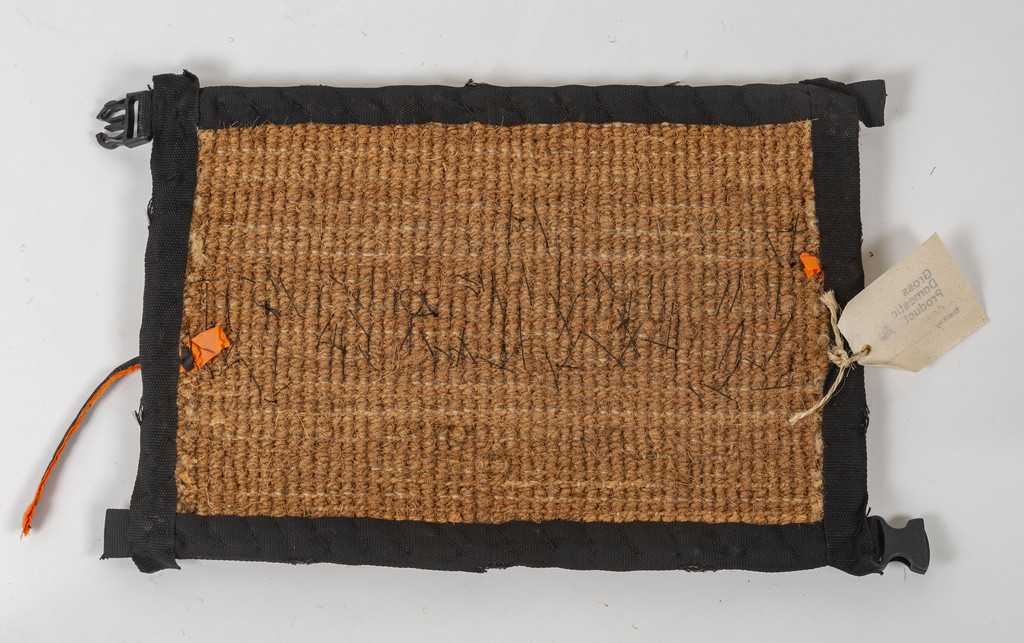 Gross
Domestic
Product